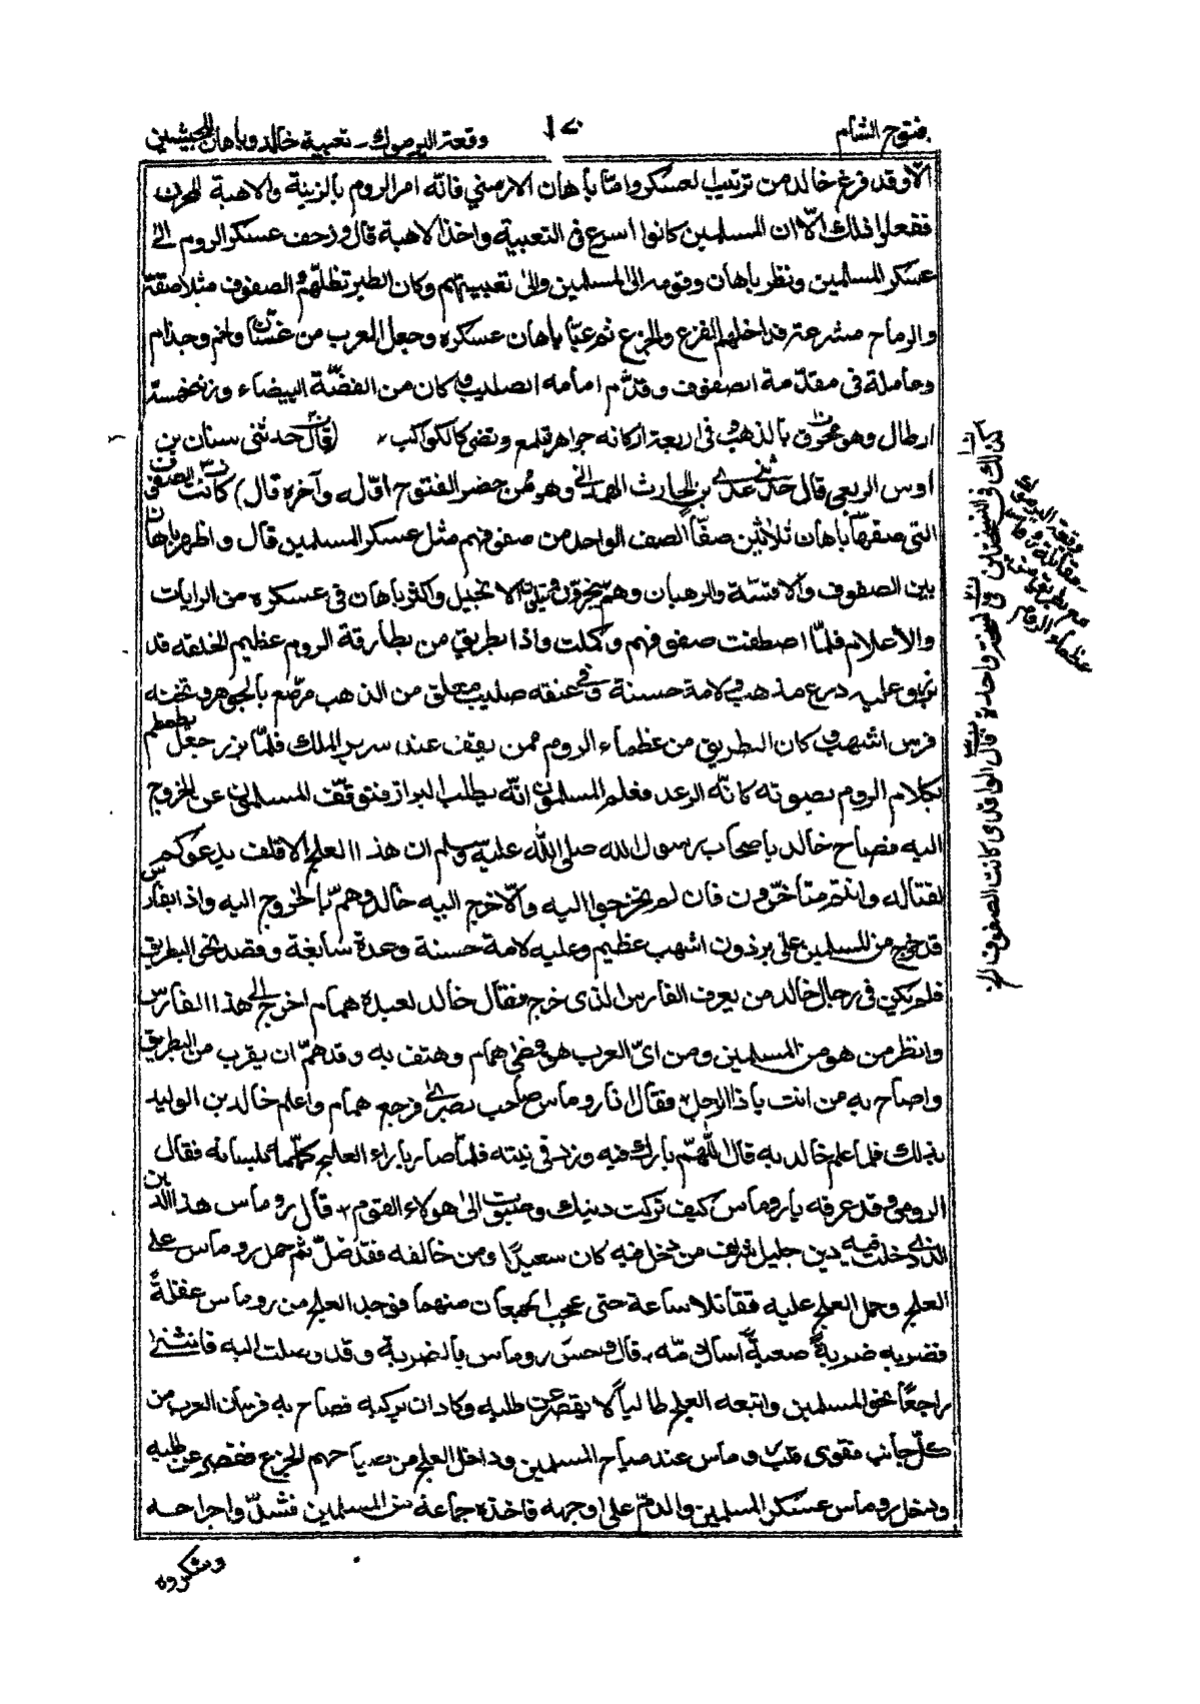 فتوح الشام
١٧٠
وقعة اليرموك - تعبية خالد وباهان للجيشين
الا وقد فرغ خالد من ترتيب العسكر واما باهان الارمني فانّه امر الروم بالزينة والاهبة للحرب
ففعلوا ذلك الّا ان المسلمين كانوا اسرع في التعبية واخذ الاهبة قال وزحف عسكر الروم الى
عسكر المسلمين ونظر باهان وقومه الى المسلمين والى تعبيتهم وكان الطير تظلّهم والصفوف متلاصقة
والرماح مشرعة قد اخلهم الفزع والجزع ثم عبّا باهان عسكره وجعل العرب من غسّان ولخم وجذام
وعاملة في مقدّمة الصفوف وقدّم امامه الصليب وكان من الفضّة البيضاء وزنه خمسة
ارطال وهو بالذهب وفي اربعة اركانه جواهر تلمع وتضى كالكواكب (قال حدثنى سنان بن
أوس الربعي قال حدثني عدي بن الحارث الهمداني وهو ممن حضر الفتوح اوّله وآخره قال) كانت الصفوف
التي صفّها باهان ثلاثين صفّا الصف الواحد من صفوفهم مثل عسكر المسلمين قال واظهر باهان
بين الصفوف والاقسّة والرهبان وهم يبخرون ويتلون الانجيل واكثر باهان في عسكره من الرايات
والأعلام فلمّا اصطفت صفوفهم وكملت واذا بطريق من بطارقة الروم عظيم الخلقه قد
برز وعليه درع مذهب ولامة حسنة وفي عنقه صليب معلق من الذهب مرصّع بالجوهر وتحته
فرس اشهب وكان البطريق من عظماء الروم ممن يقف عند سرير الملك فلمّا برز جعل يطمطم
بكلام الروم بصوته كانّه الرعد فعلم المسلمون انّه يطلب البراز فتوقّف المسلمون عن الخروج
اليه فصاح خالد يا اصحاب رسول الله صلى الله عليه وسلم ان هذا العلج الاقلف يدعوكم
لقتاله وانتم متأخّرون فان لم تخرجوا اليه والّا خرج اليه خالد وهمّ بالخروج اليه واذا بفارس
قد خرج من المسلمين على برذون اشهب عظيم وعليه لامة حسنة وعدة سابغة وقصد نحو البطريق
فلم يكن في رجال خالد من يعرف الفارس الذي خرج فقال خالد لعبده همام اخرج الى هذا الفارس
وانظر من هو من المسلمين ومن اىّ العرب هو فمضى همام وهتف به وقد همّ ان يقرب من البطريق
وصاح به من انت يا ذا الرجل فقال انا روماس صاحب بصرى فرجع همام واعلم خالد بن الوليد
بذلك فلما علم خالد به قال اللّهمّ بارك فيه وزد في نيته فلمّا صار بازاء العلج كلّمه بلسانه فقال
الرومي وقد عرفه يا روماس كيف تركت دينك وصبوت الى هولاء القوم قال روماس هذا الدين
الذي دخلت فيه دين جليل شريف من دخل فيه كان سعيدًا ومن خالفه فقد ضلّ ثم حمل روماس على
العلج وحمل العلج عليه فقاتلا ساعة حتى عجب الجمعان منهما فوجد العلج من روماس غفلةً
فضربه ضربةً صعبةً أسال دمّه قال وحسّ روماس بالضربة وقد وصلت اليه فانثنى
راجعًا نحو المسلمين واتبعه العلج طالباً لا يقصر عن طلبه وكاد ان يركبه فصاح به فرسان العرب من
كلّ جانب فقوى قلب روماس عند صياح المسلمين وداخل العلج من صياحهم الجزع فقصر عن طلبه
ودخل روماس عسكر المسلمين والدم على وجهه فاخذه جماعة من المسلمين فشدّوا جراحه
وشكروه
كذلك في النسختين وفي نسخة واحدة قال الواقدي كانت الصفوف الخ
وقعة اليرموك
مقاتلة روماس
مع بطريق من
عظماء الروم